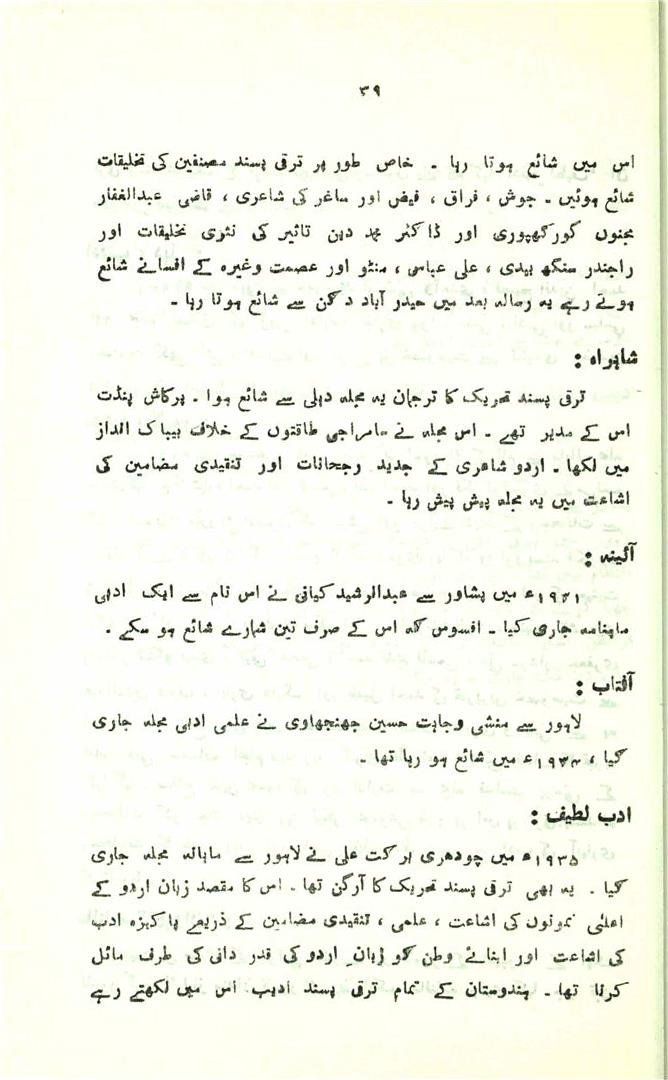 ۳۹
اس میں شائع ہوتا رہا ۔ خاص طور پر ترقی پسند مصنفین کی تخلیقات
شائع ہوئیں ۔ جوش ، فراق ، فیض اور ساغر کی شاعری ، قاضی عبدالغفار
مجنوں گورکھپوری اور ڈاکٹر محمد دین تاثیر کی نثری تخلیقات اور
راجندر سنگھ بیدی ، علی عباسی ، منٹو اور عصمت وغیرہ کے افسانے شائع
ہوتے رہے یہ رسالہ بعد میں حیدر آباد دکن سے شائع ہوتا رہا ۔
شاہراہ :
ترقی پسند تحریک کا ترجمان یہ مجلہ دہلی سے شائع ہوا ۔ پرکاش پنڈت
اس کے مدیر تھے ۔ اس مجلہ نے سامراجی طاقتوں کے خلاف بیباک انداز
میں لکھا ۔ اردو شاعری کے جدید رجحانات اور تنقیدی مضامین کی
اشاعت میں یہ مجلہ پیش پیش رہا ۔
آئینہ :
میں پشاور سے عبدالرشید کیانی نے اس نام سے ایک ادبی
ماہنامہ جاری کیا ۔ افسوس کہ اس کے صرف تین شمارے شائع ہو سکے ۔
آفتاب :
لاہور سے منشی وجاہت حسین جھنجھاوی نے علمی ادبی مجلہ جاری
کیا ، میں شائع ہو رہا تھا ۔
ادب لطیف :
۱۹۳۵ء میں چودھری برکت علی نے لاہور سے ماہانہ مجلہ جاری
کیا ۔ یہ بھی ترقی پسند تحریک کا آرگن تھا ۔ اس کا مقصد زبان اردو کے
اعلیٰ نمونوں کی اشاعت ، علمی ، تنقیدی مضامین کے ذریعے پاکیزہ ادب
کی اشاعت اور ابنائے وطن کو زبان اردو کی قدر دانی کی طرف مائل
کرنا تھا ۔ ہندوستان کے تمام ترقی پسند ادیب اس میں لکھتے رہے